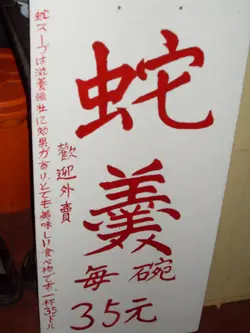 蛇羹
每碗
35元
歡迎外賣
蛇スープは滋養強壮に効果があり、とても美味しい食べ物です。一杯35ドル